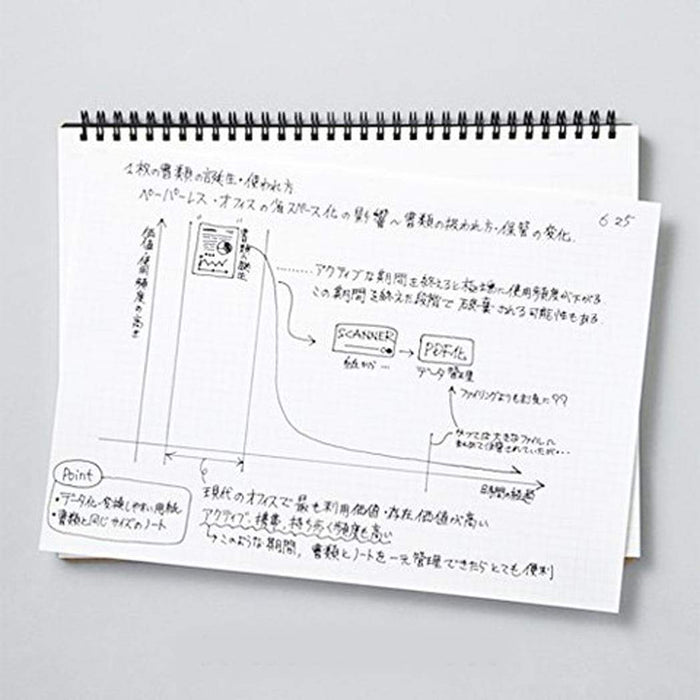 1枚の書類の誕生・使われ方
ペーパーレス・オフィスの省スペース化の影響〜書類の扱われ方・保管の変化.
6 25
価値・使用頻度の高さ
書類の誕生
アクティブな期間を終えると極端に使用頻度が下がる.
この期間を終えた段階で破棄される可能性もある.
SCANNER
紙から…
PDF化
データ管理
ファイリングよりもお気に??
かつては大きなファイルに
まとめて保管されていたが…
時間の経過
Point
・データ化・変換しやすい用紙
・書類と同じサイズのノート
現代のオフィスで最も利用価値・存在価値が高い
アクティブ、携帯、持ち歩く頻度も高い
↳このような期間、書類とノートを一元管理できたらとても便利